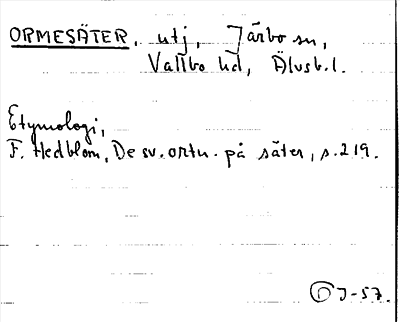 ORMESÄTER, utj, Järbo sn,
Valbo hd, Älvsb.l.
Etymologi,
F. Hedblom, De sv. ortn. på säter, s. 219.
D J-57.